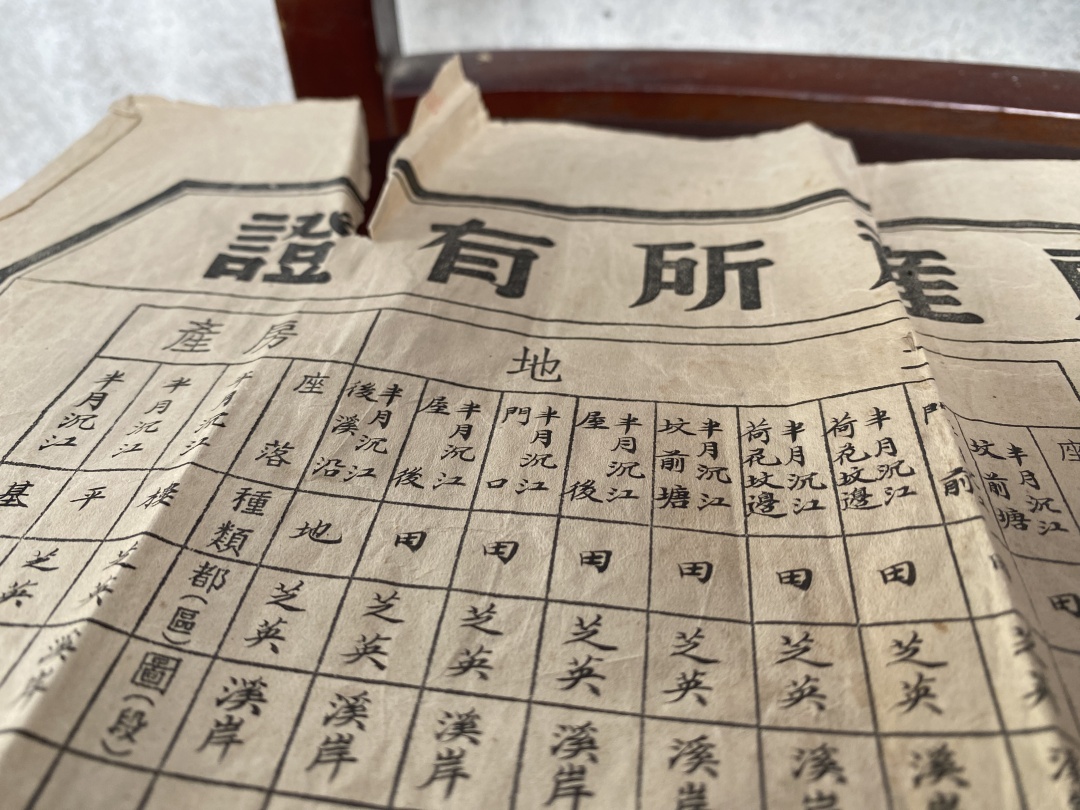 產所有證
地
房產
座
半月沉江
坟前塘
田
前
半月沉江
荷花坟邊
田
芝英
溪岸
半月沉江
荷花坟邊
田
芝英
溪岸
半月沉江
坟前塘
田
芝英
溪岸
半月沉江
屋後
田
芝英
溪岸
半月沉江
門口
田
芝英
溪岸
半月沉江
屋後
田
芝英
溪岸
半月沉江
後溪沿
地
芝英
溪岸
座落
種類
都(區)
圖(段)
半月沉江
樓
芝英
半月沉江
平
芝英
半月沉江
基